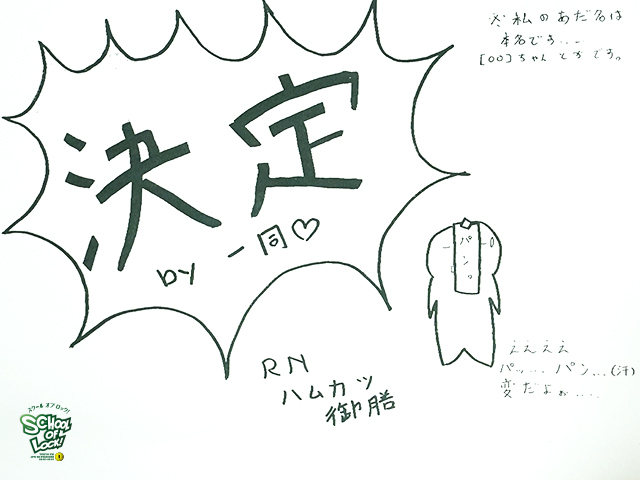 ※私のあだ名は
本名です...
[〇〇]ちゃんとかです。
決定
by 一同♡
パン。
ええええ
パッ... パン...(汗)
変だよぉ....
RN
ハムカツ
御膳
スクール オブ ロック!
SCHOOL
OF
LOCK!